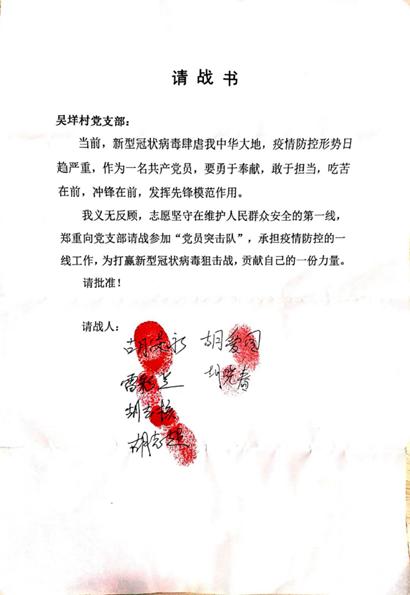 请战书
吴垟村党支部：
当前，新型冠状病毒肆虐我中华大地，疫情防控形势日
趋严重，作为一名共产党员，要勇于奉献，敢于担当，吃苦
在前，冲锋在前，发挥先锋模范作用。
我义无反顾，志愿坚守在维护人民群众安全的第一线，
郑重向党支部请战参加“党员突击队”，承担疫情防控的一
线工作，为打赢新型冠状病毒狙击战，贡献自己的一份力量。
请批准！
请战人：
胡 胡爱国
雷 兰 胡 春
胡
胡